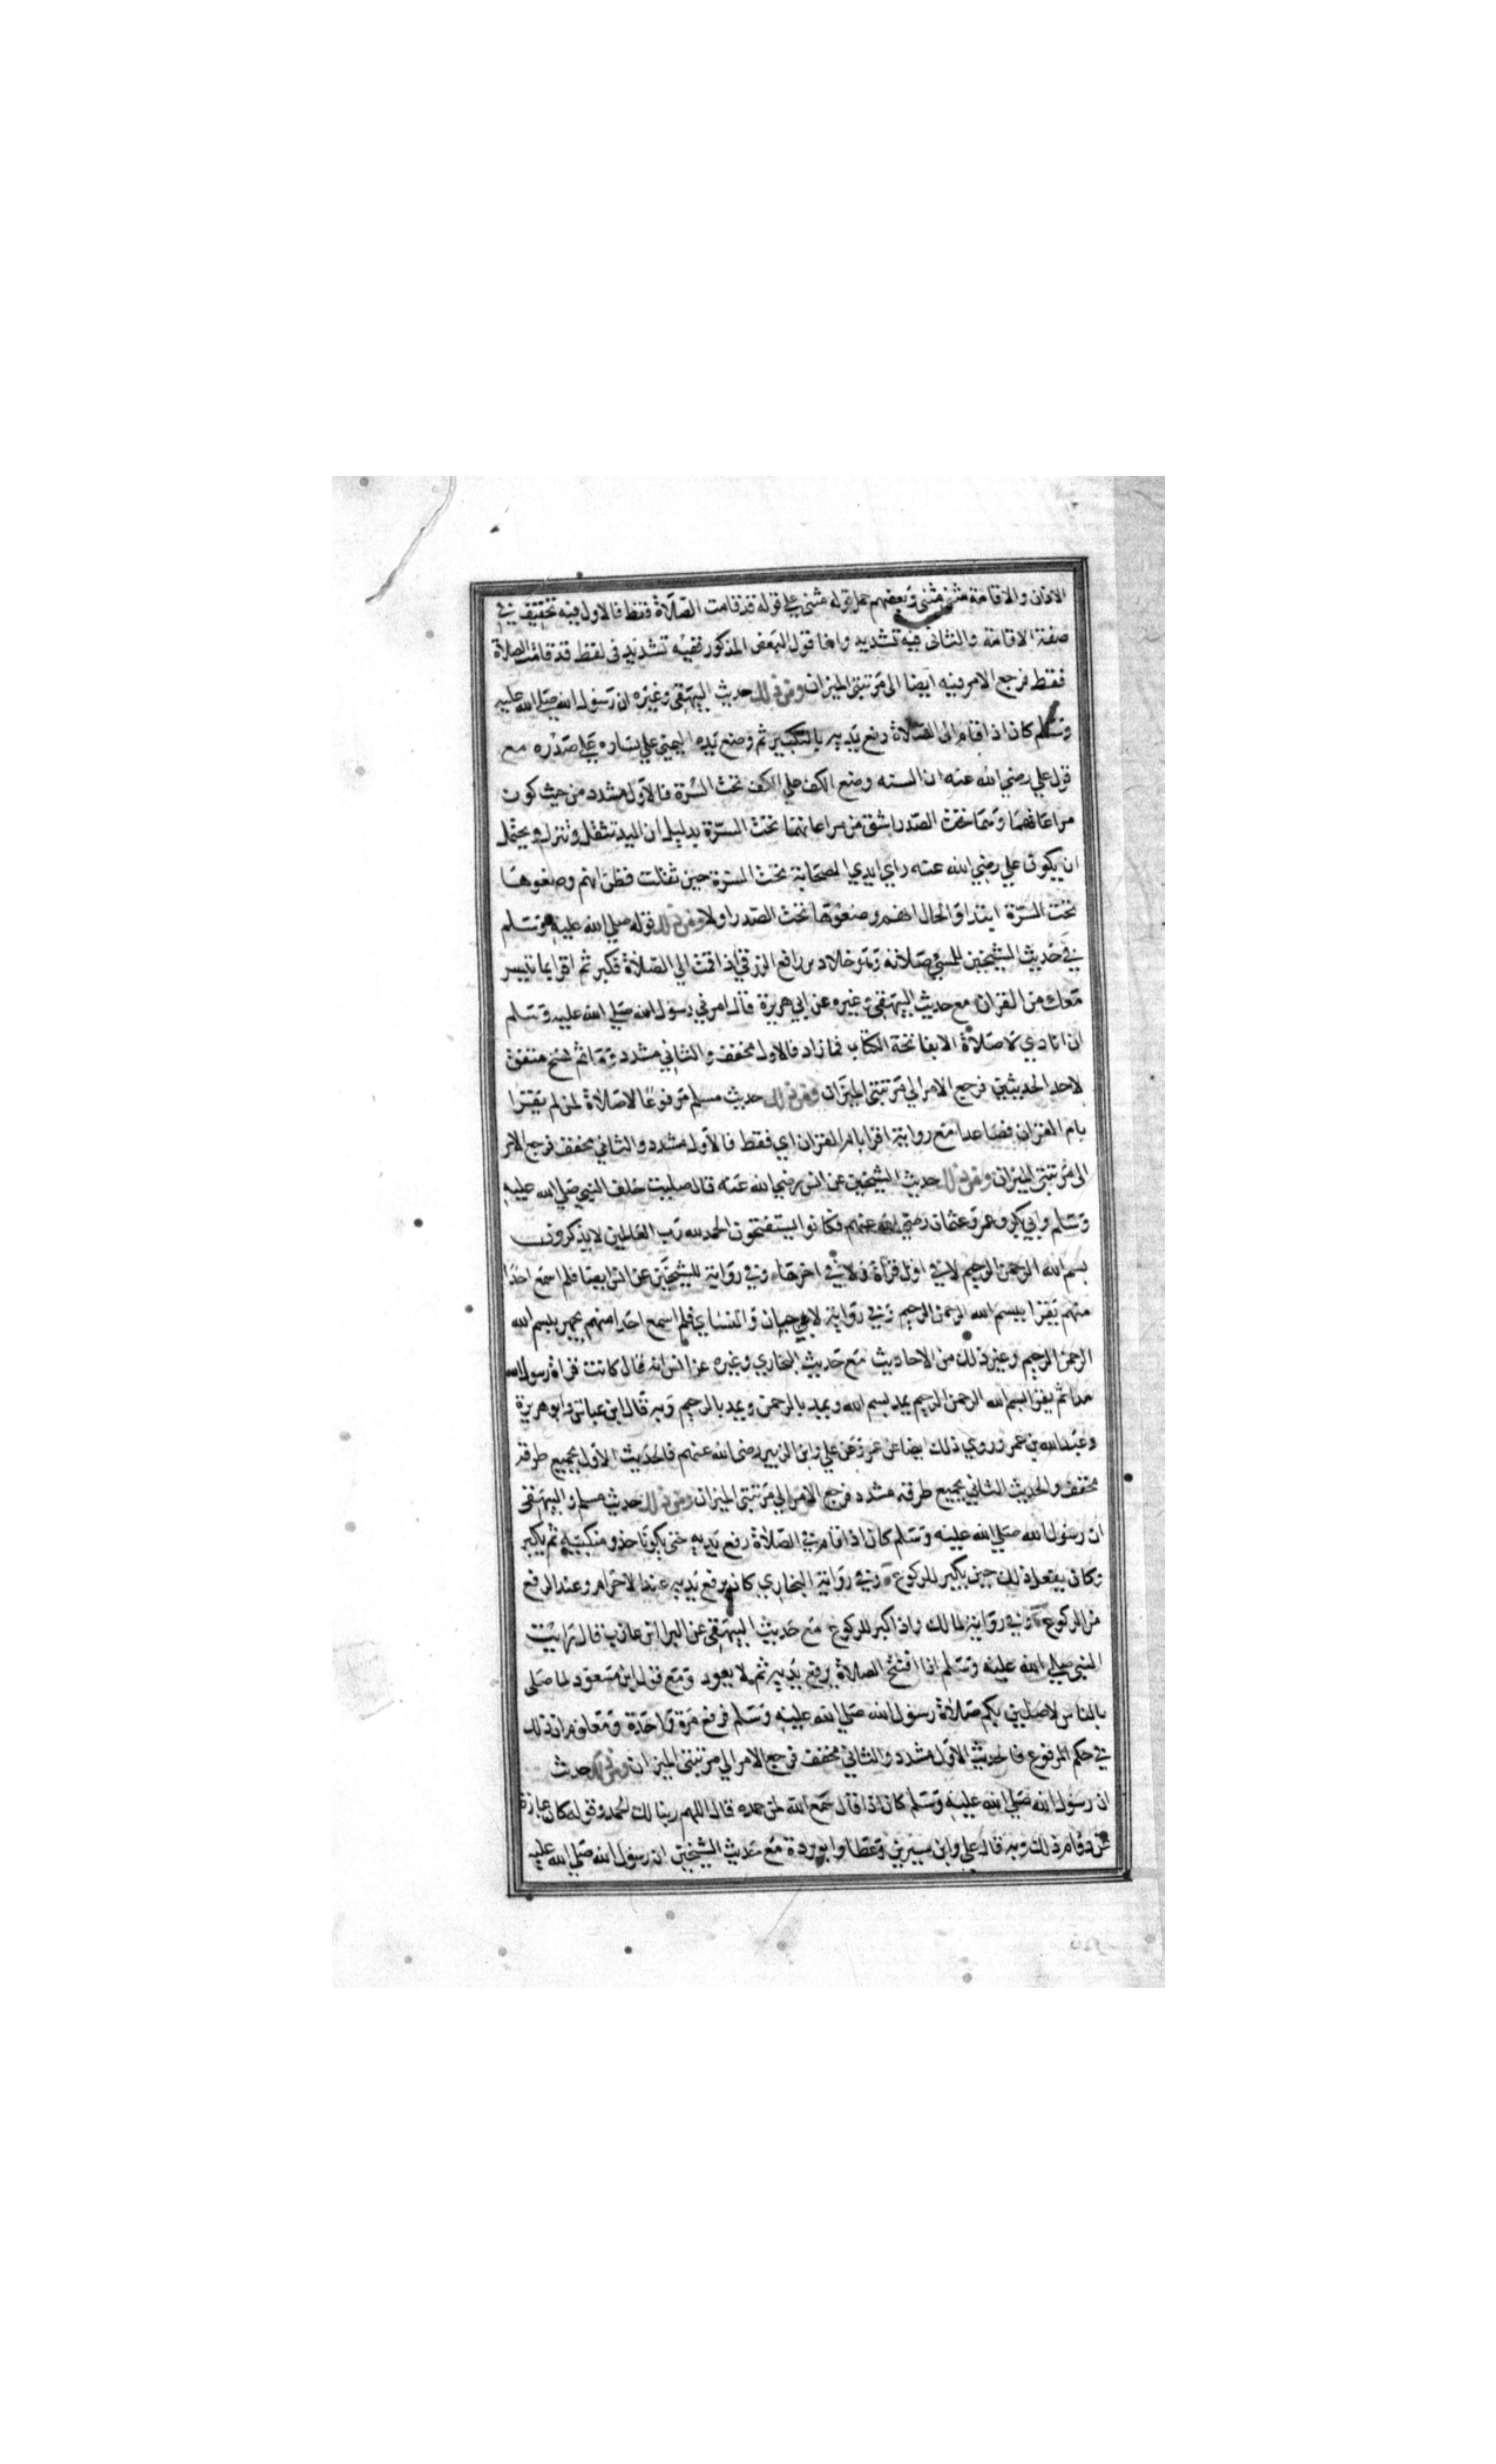 الاذان والاقامة مثنى مثنى وبعضهم حمل قوله مثنى على قوله قد قامت الصلاة فقط فالاول فيه تخفيف في
صفة الاقامة والثانى فيه تشديد واما قول البعض المذكور ففيه تشديد فى لفظ قد قامت الصلاة
فقط فرجع الامر فيه ايضا الى مرتبتى الميزان ومن ذلك حديث البيهقى وغيره ان رسول الله صلى الله عليه
وسلم كان اذا قام الى الصلاة رفع يديه بالتكبير ثم وضع يده اليمنى على يساره على صدره مع
قول علي رضي الله عنه ان السنه وضع الكف على الكف تحت السرة فالاول مشدد من حيث كون
مراعاتهما وهما تحت الصدر اشق من مراعاتهما تحت السرة بدليل ان اليد تثقل وتنزل ويحتمل
ان يكون علي رضي الله عنه راي ايدي الصحابة تحت السرة حين ثقلت فظن انهم وضعوها
تحت السرة ابتداء والحال انهم وضعوها تحت الصدر اولا ومن ذلك قوله صلي الله عليه وسلم
في حديث الشيخين للمسئ صلاته وهو خلاد بن رافع الزرقي اذا قمت الي الصلاة فكبر ثم اقرا بما تيسر
معك من القران مع حديث البيهقى وغيره عن ابي هريرة قال امرني رسول الله صلي الله عليه وسلم
ان انادي لا صلاة الا بفاتحة الكتاب فما زاد فالاول مخفف والثاني مشدد وما ثم نسخ متفق
لاحد الحديثين فرجع الامر الي مرتبتى الميزان ومن ذلك حديث مسلم مرفوعا لا صلاة لمن لم يقرا
بام القران فصاعدا مع رواية اقرا بام القران اي فقط فالاول مشدد والثاني مخفف فرجع الامر
الى مرتبتى الميزان ومن ذلك حديث الشيخين عن انس رضي الله عنه قال صليت خلف النبي صلي الله عليه
وسلم وابي بكر وعمر وعثمان رضي الله عنهم فكانوا يستفتحون الحمد لله رب العالمين لا يذكرون
بسم الله الرحمن الرحيم لا في اول قراة ولا في اخرها وفي رواية للشيخين عن انس ايضا فلم اسمع احدا
منهم يقرا ببسم الله الرحمن الرحيم وفي رواية لابن حبان والنساي فلم اسمع احدا منهم يجهر ببسم الله
الرحمن الرحيم وغير ذلك من الاحاديث مع حديث البخاري وغيره عن انس انه قال كانت قراة رسول الله
مدا ثم يقرا بسم الله الرحمن الرحيم يمد بسم الله ويمد بالرحمن ويمد بالرحيم وبه قال ابن عباس وابو هريرة
وعبد الله بن عمر وروي ذلك ايضا عن عمر وعن علي وابن الزبير رضى الله عنهم فالحديث الاول بجميع طرقه
مخفف والحديث الثاني بجميع طرقه مشدد فرجع الامر الي مرتبتى الميزان ومن ذلك حديث مسلم والبيهقى
ان رسول الله صلي الله عليه وسلم كان اذا قام في الصلاة رفع يديه حتى يكونا حذو منكبيه ثم يكبر
وكان يفعل ذلك حين يكبر للركوع وفي رواية البخاري كان يرفع يديه عند الاحرام وعند الرفع
من الركوع وفي رواية لمالك واذا كبر للركوع مع حديث البيهقى عن البرا ابن عازب قال رايت
النبي صلي الله عليه وسلم اذا افتتح الصلاة يرفع يديه ثم لا يعود ومع قول ابن مسعود لما صلى
بالناس لاصلين بكم صلاة رسول الله صلي الله عليه وسلم فرفع مرة واحدة ومعلوم ان ذلك
في حكم المرفوع فالحديث الاول مشدد والثاني مخفف فرجع الامر الي مرتبتى الميزان ومن ذلك حدث
ان رسول الله صلي الله عليه وسلم كان اذا قال سمع الله لمن حمده قال اللهم ربنا لك الحمد وقوله كان عبارة
عن دوام ذلك وبه قال علي وابن سيرين وعطا وابو بردة مع حديث الشيخين ان رسول الله صلي الله عليه